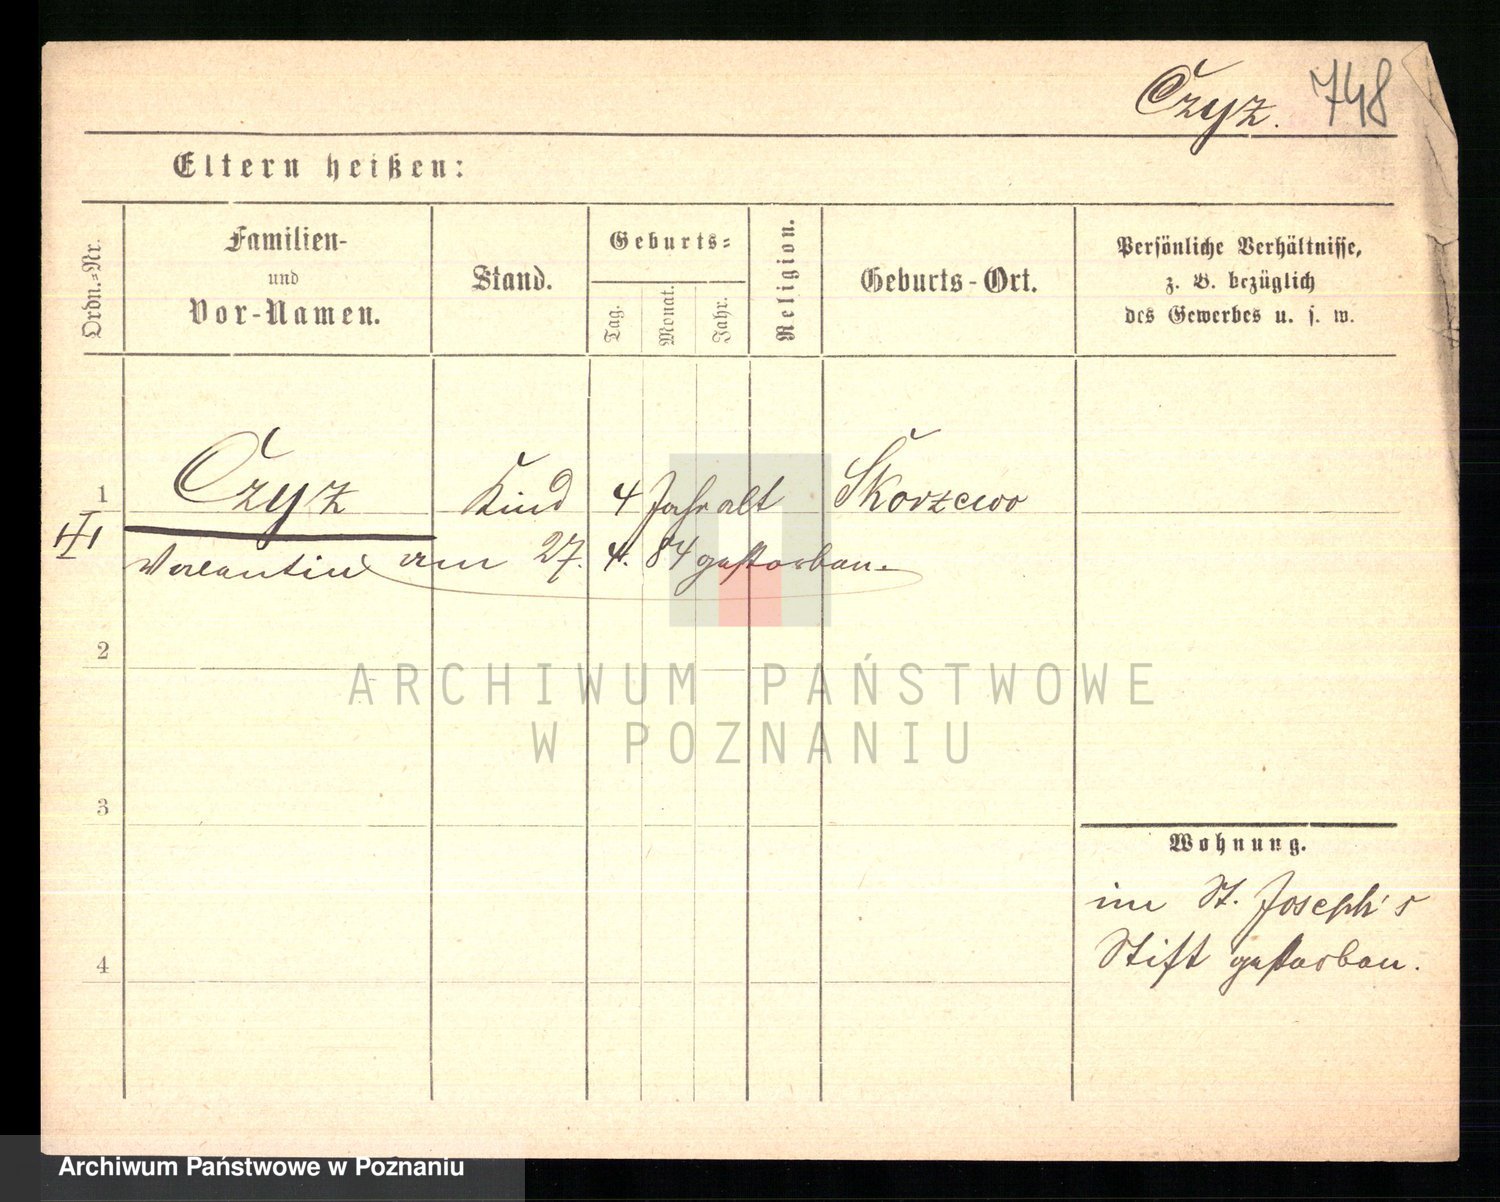 Czyz. 748
Eltern heißen:
Ordn.-Nr.
Familien-
und
Vor-Namen.
Stand.
Geburts-
Tag.
Monat.
Jahr.
Religion.
Geburts-Ort.
Persönliche Verhältnisse,
z. B. bezüglich
des Gewerbes u. s. w.
1 Czyz Kind 4 Jahr alt Skorzewo
Valentin am 27. 4. 84 gestorben.
2
ARCHIWUM PAŃSTWOWE
W POZNANIU
3
Wohnung.
im St. Joseph's
4 Stift gestorben.
Archiwum Państwowe w Poznaniu